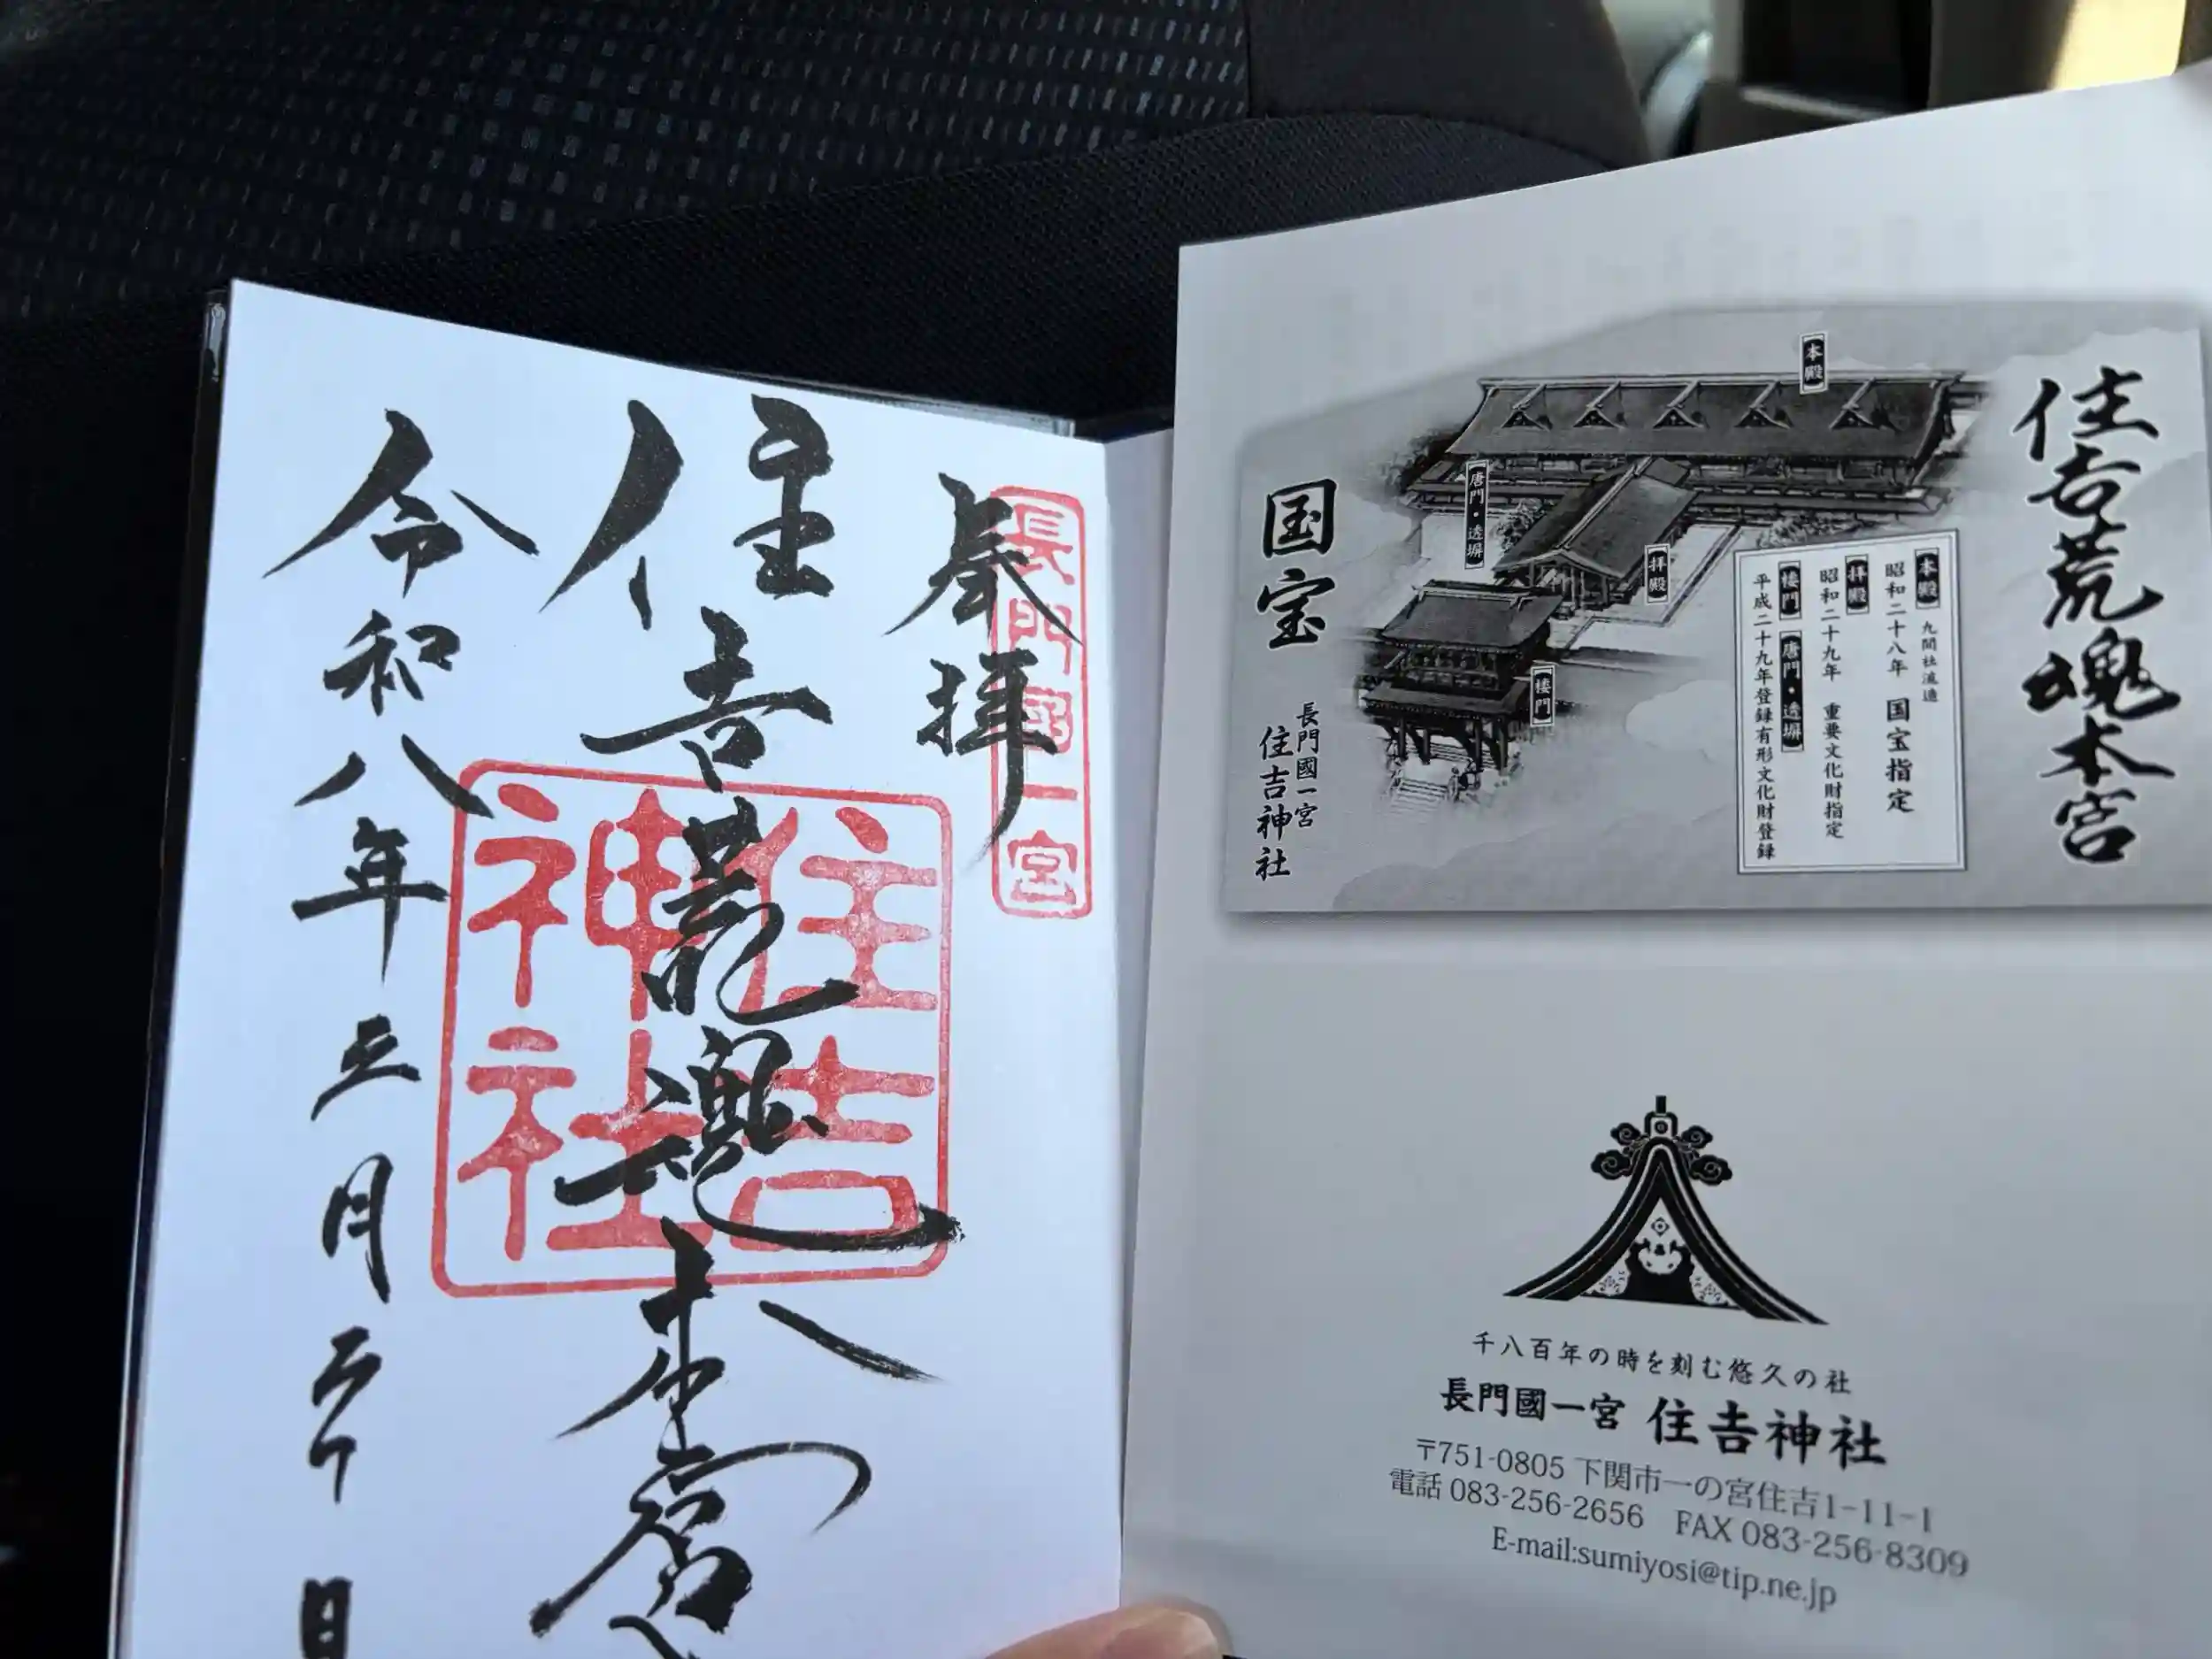 奉拝
長門國一宮
住吉荒魂本宮
住吉神社
令和八年三月
日
住吉荒魂本宮
本殿
唐門・透塀
拝殿
楼門
本殿 九間社流造
昭和二十八年 国宝指定
拝殿
昭和二十九年 重要文化財指定
楼門 唐門・透塀
平成二十九年登録有形文化財登録
国宝
長門國一宮
住吉神社
千八百年の時を刻む悠久の社
長門國一宮 住吉神社
〒751-0805 下関市一の宮住吉1-11-1
電話 083-256-2656 FAX 083-256-8309
E-mail:sumiyosi@tip.ne.jp